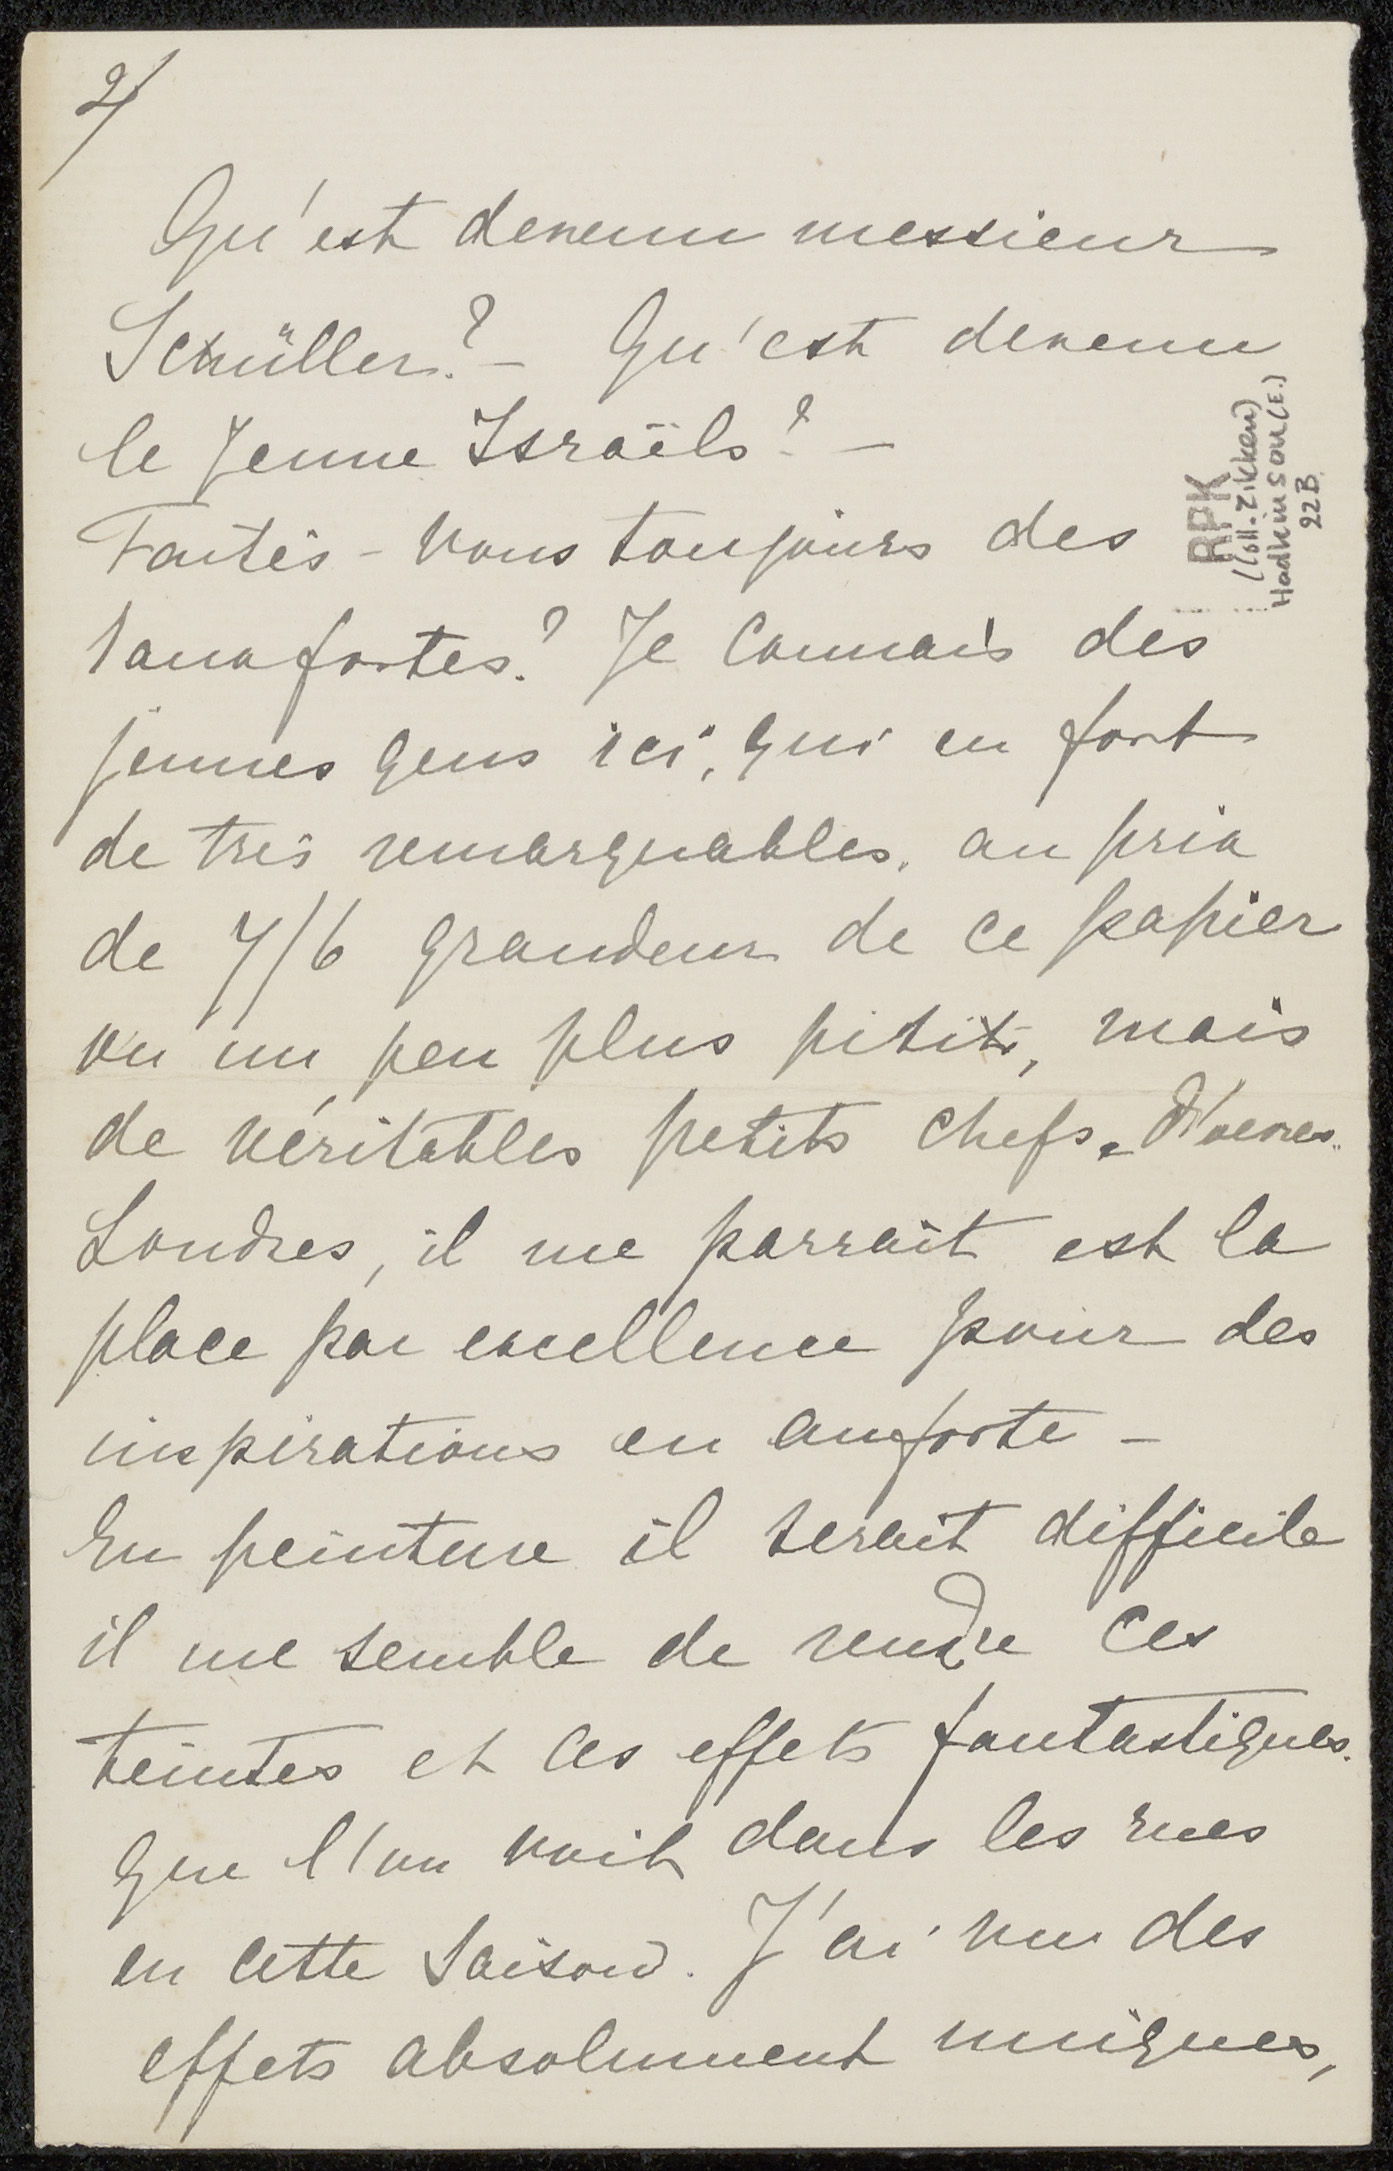 2/
Qu'est devenu messieur
Schüller? - Qu'est devenu
le jeune Israëls? -
Faites-vous toujours des
l'eaux fortes? Je connais des
jeunes gens ici, qui en font
de très remarquables, au prix
de 7/6 grandeur de ce papier
ou un peu plus petit, mais
de véritables petits chefs-d'oevres.
Londres, il me parrait est la
place par excellence pour des
inspirations en eauforte -
En peinture il serait difficile
il me semble de rendre ces
teintes et ces effets fantastiques.
que l'on voit dans les rues
en cette saison. J'ai vu des
effets absolument uniques,
RPK
(Coll. Zikken)
Hodkinson (E.)
22B